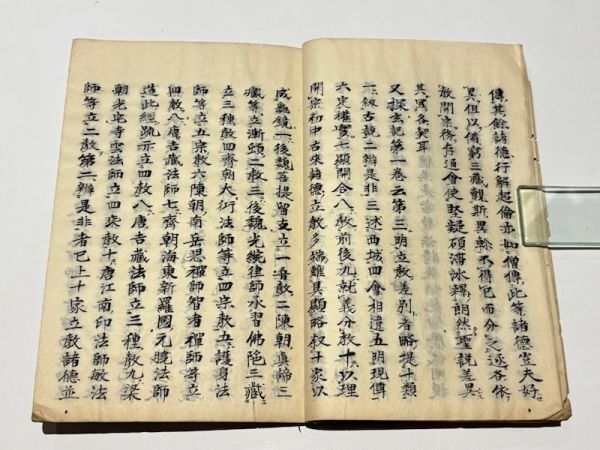 傳其餘諸德行解超倫亦如僧傳此等諸德豈夫好
異但以備窮三藏覩斯異軫不得已而分之遂各依
教開宗務存通會使堅疑碩滯氷釋朗然聖說差異
其冝各契耳
又探玄記第一卷云第三明立教差別者略提十類
一叙古說二辨是非三述西域四會相違五明現傳
六定權實七顯開合八教前後九就義分教十以理
開宗初中古來諸德立教多端難具顯略叙十家以
成龜鏡一後魏菩提留支立一音教二陳朝真諦三
藏等立漸頓二教三後魏光統律師承習佛陁三藏
立三種教四齊朝大衍法師等立四宗教五護身法
師等立五宗教六陳朝南岳思禪師智者禪師等立
四教七唐朝海東新羅國元曉法師
造此經疏示立四教八唐吉藏法師立三種教九梁
朝光宅寺雲法師立四乘教十唐江南印法師敏法
師等立二教第二辨是非者已上十家立教諸德並